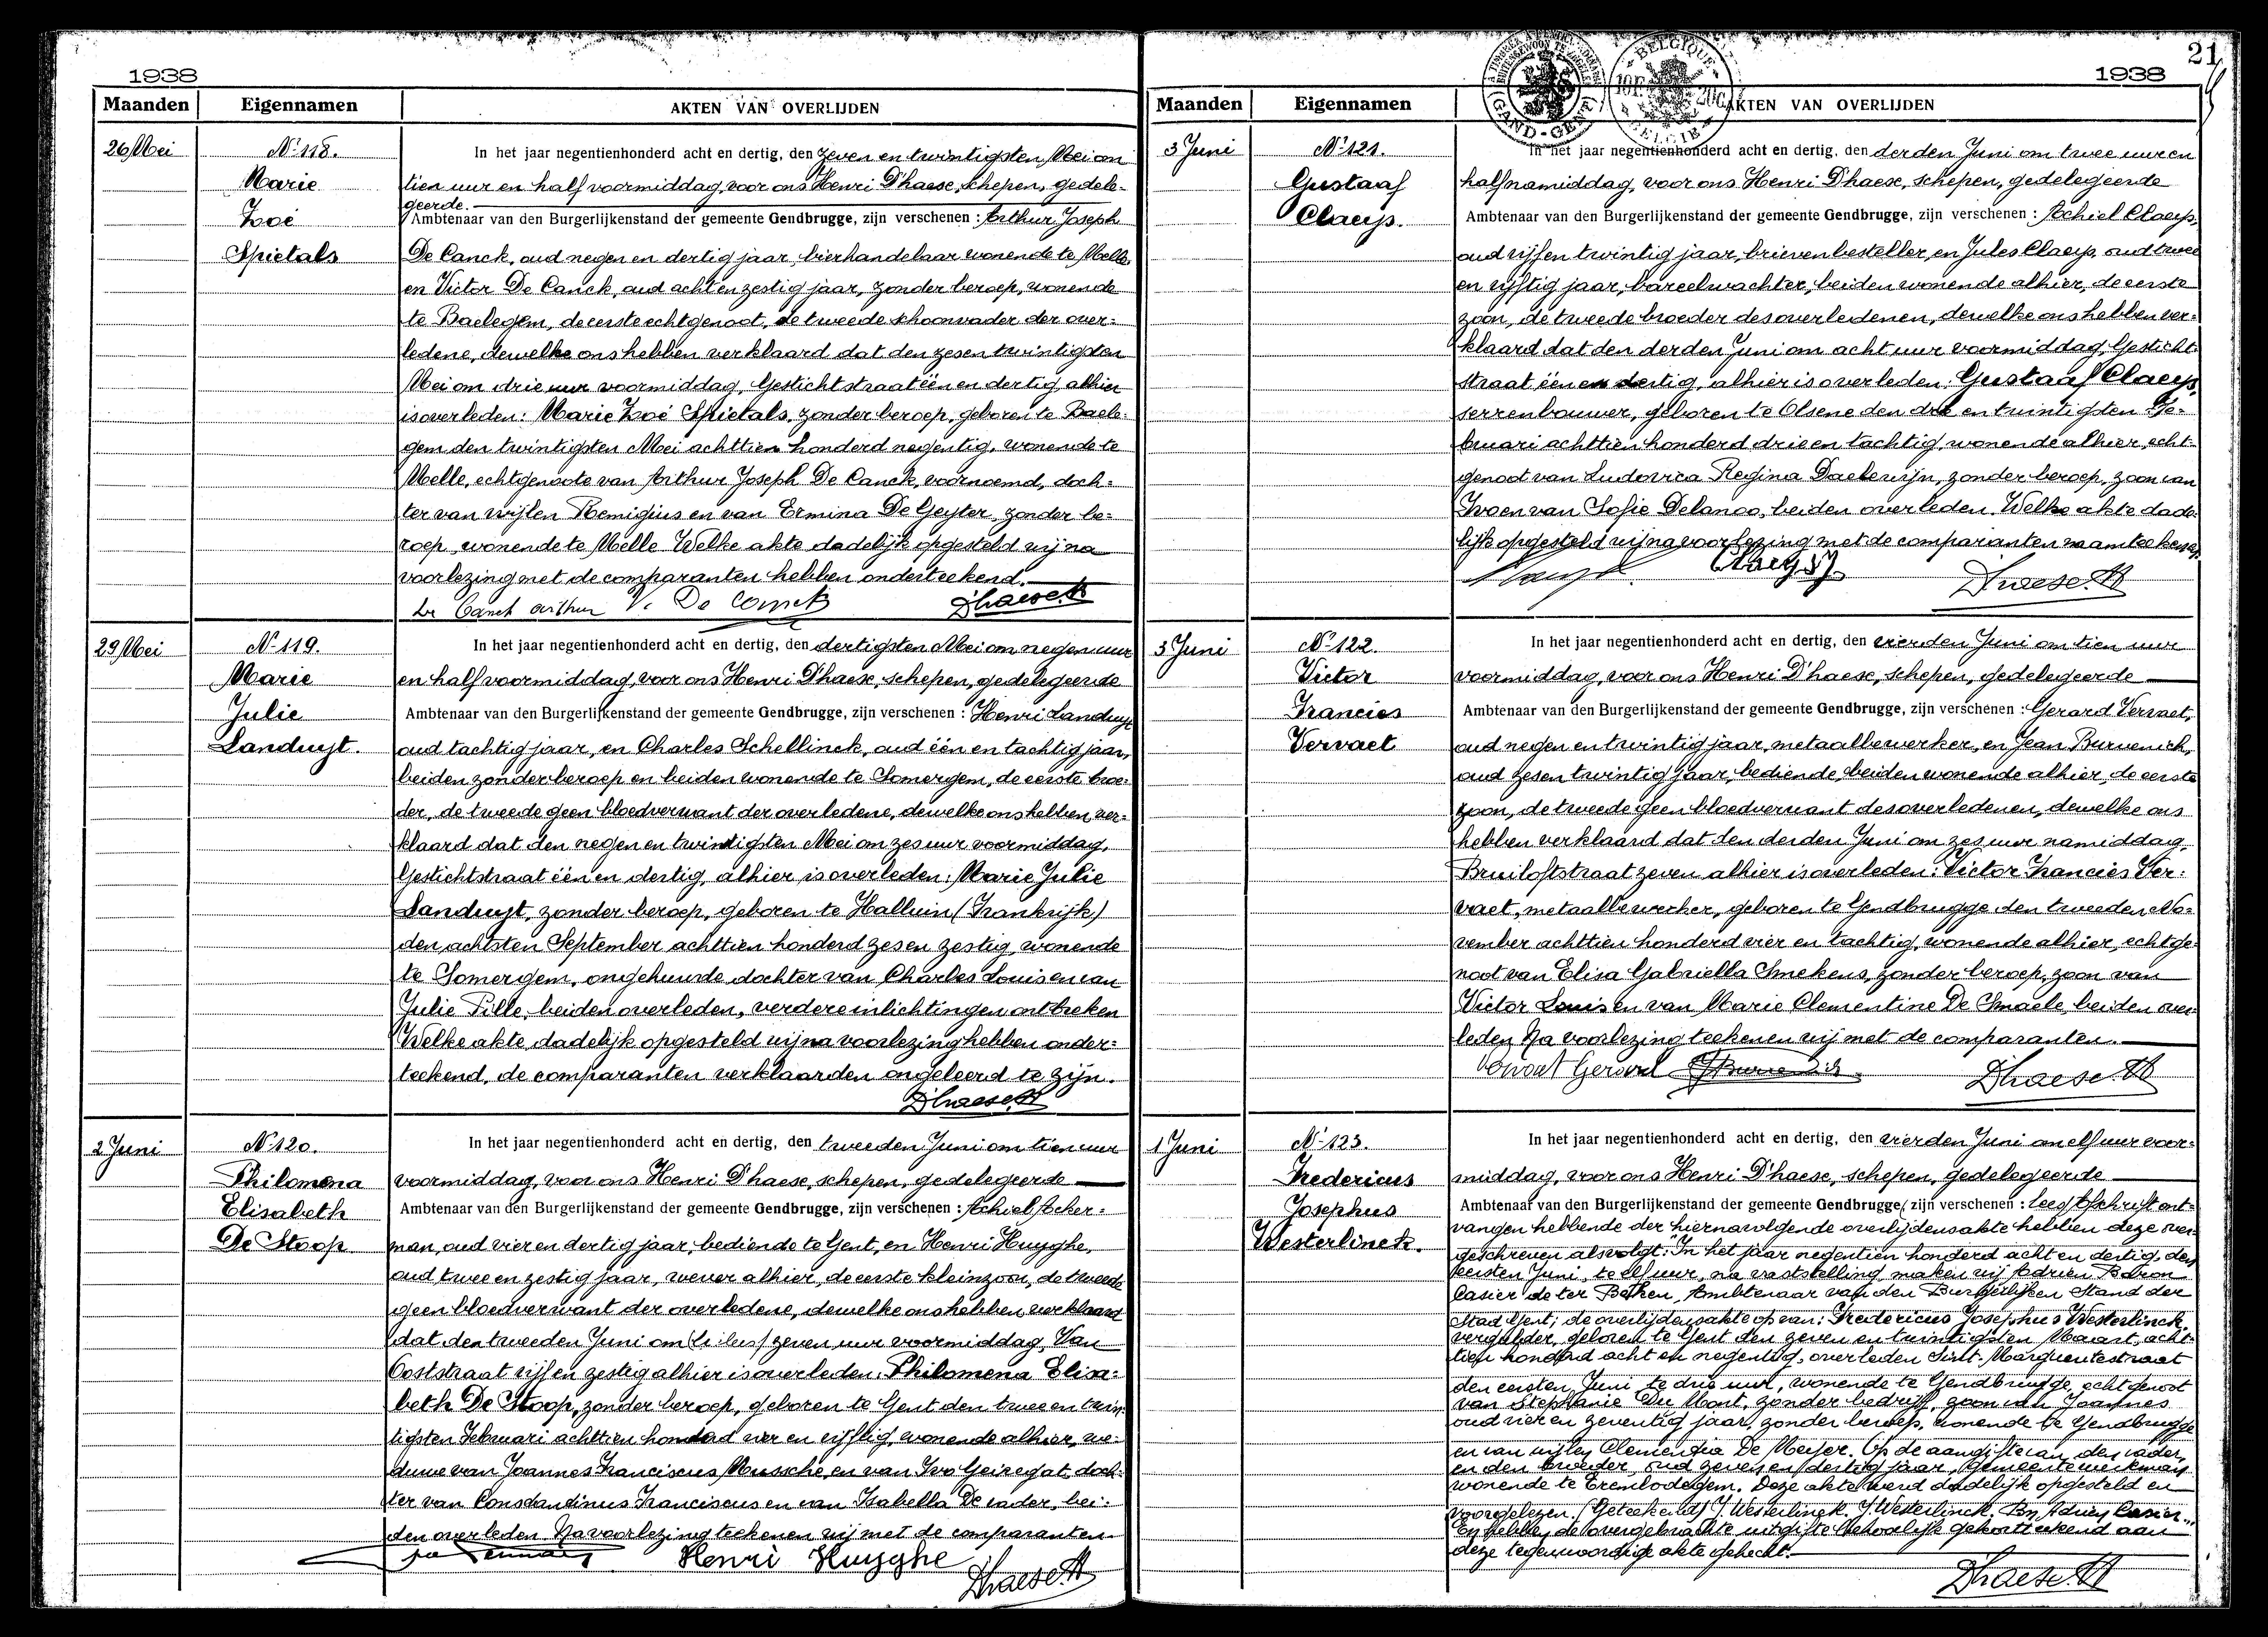 1938
Maanden Eigennamen AKTEN VAN OVERLIJDEN
26 Mei
N° 118.
Marie
Zoé
Spietals
In het jaar negentienhonderd acht en dertig, den zeven en twintigsten Mei om
tien uur en half voormiddag, voor ons Henri D'haese, schepen, gedele-
geerde.
Ambtenaar van den Burgerlijkenstand der gemeente Gendbrugge, zijn verschenen : Arthur Joseph
De Canck, oud negen en dertig jaar, bierhandelaar wonende te Melle
en Victor De Canck, oud acht en zestig jaar, zonder beroep, wonende
te Baelegem, de eerste echtgenoot, de tweede schoonvader der over-
ledene, dewelke ons hebben verklaard dat den zes en twintigsten
Mei om drie uur voormiddag, Gestichtstraat één en dertig alhier
is overleden: Marie Zoé Spietals, zonder beroep, geboren te Baele-
gem den twintigsten Mei achttien honderd negentig, wonende te
Melle, echtgenoote van Arthur Joseph De Canck, voornoemd, doch-
ter van wijlen Remigius en van Ermina De Geyter, zonder be-
roep, wonende te Melle. Welke akte dadelijk opgesteld wij na
voorlezing met de comparanten hebben onderteekend.
De Canck Arthur V. De Canck Dhaese H
29 Mei
N° 119.
Marie
Julie
Landuyt.
In het jaar negentienhonderd acht en dertig, den dertigsten Mei om negen uur
en half voormiddag, voor ons Henri D'haese, schepen, gedelegeerde
Ambtenaar van den Burgerlijkenstand der gemeente Gendbrugge, zijn verschenen : Henri Landuyt
oud tachtig jaar, en Charles Schellinck, oud één en tachtig jaar,
beiden zonder beroep en beiden wonende te Somergem, de eerste broe-
der, de tweede geen bloedverwant der overledene, dewelke ons hebben ver-
klaard dat den negen en twintigsten Mei om zes uur voormiddag,
Gestichtstraat één en dertig, alhier is overleden: Marie Julie
Landuyt, zonder beroep, geboren te Halluin (Frankrijk)
den achtsten September achttien honderd zes en zestig, wonende
te Somergem, ongehuwde dochter van Charles Louis en van
Julie Pille, beiden overleden, verdere inlichtingen ontbreken
Welke akte dadelijk opgesteld wij na voorlezing hebben onder-
teekend, de comparanten verklaarden ongeleerd te zijn.
Dhaese H
2 Juni
N° 120.
Philomena
Elisabeth
De Stoop
In het jaar negentienhonderd acht en dertig, den tweeden Juni om tien uur
voormiddag, voor ons Henri D'haese, schepen, gedelegeerde
Ambtenaar van den Burgerlijkenstand der gemeente Gendbrugge, zijn verschenen : Achiel Acker-
man, oud vier en dertig jaar, bediende te Gent, en Henri Huyghe,
oud twee en zestig jaar, wever alhier, de eerste kleinzoon, de tweede
geen bloedverwant der overledene, dewelke ons hebben verklaard
dat den tweeden Juni om zeven uur voormiddag, Van
Ooststraat vijf en zestig alhier is overleden: Philomena Elisa-
beth De Stoop, zonder beroep, geboren te Gent den twee en twin
tigsten Februari achttien honderd vier en vijftig, wonende alhier, we-
duwe van Joannes Franciscus Mussche, en van Ivo Geiregat, doch-
ter van Constandinus Franciscus en van Isabella De vader, bei-
den overleden. Na voorlezing teekenen wij met de comparanten.
Henri Huyghe Dhaese H
21
1938
Maanden Eigennamen AKTEN VAN OVERLIJDEN
GAND-GENT
BELGIQUE
BELGIË
3 Juni
N° 121.
Gustaaf
Claeys.
In het jaar negentienhonderd acht en dertig, den derden Juni om twee uur en
half namiddag, voor ons Henri D'haese, schepen, gedelegeerde
Ambtenaar van den Burgerlijkenstand der gemeente Gendbrugge, zijn verschenen : Achiel Claeys,
oud vijf en twintig jaar, brievenbesteller, en Jules Claeys, oud twee
en vijftig jaar, bareelwachter, beiden wonende alhier, de eerste
zoon, de tweede broeder des overledenen, dewelke ons hebben ver-
klaard dat den derden Juni om acht uur voormiddag, Gesticht-
straat één en dertig, alhier is overleden: Gustaaf Claeys,
serrenbouwer, geboren te Olsene den drie en twintigsten Fe-
bruari achttien honderd drie en tachtig, wonende alhier, echt-
genoot van Ludovica Regina Daelewijn, zonder beroep, zoon van
Ivo en van Sofie Delanoo, beiden overleden. Welke akte dade-
lijk opgesteld wij na voorlezing met de comparanten naamteekenen
Claeys J Dhaese H
3 Juni
N° 122.
Victor
Francies
Vervaet
In het jaar negentienhonderd acht en dertig, den vierden Juni om tien uur
voormiddag, voor ons Henri D'haese, schepen, gedelegeerde
Ambtenaar van den Burgerlijkenstand der gemeente Gendbrugge, zijn verschenen : Gerard Vervaet,
oud negen en twintig jaar, metaalbewerker, en Jean Burvenich,
oud zes en twintig jaar, bediende, beiden wonende alhier, de eerste
zoon, de tweede geen bloedverwant des overledenen, dewelke ons
hebben verklaard dat den derden Juni om zes uur namiddag,
Bruiloftstraat zeven alhier is overleden: Victor Francies Ver-
vaet, metaalbewerker, geboren te Gendbrugge den tweeden No-
vember achttien honderd vier en tachtig, wonende alhier, echtge-
noot van Elisa Gabriella Smekens, zonder beroep, zoon van
Victor Louis en van Marie Clementine De Smaele, beiden over-
leden. Na voorlezing teekenen wij met de comparanten.
Vervaet Gerard Dhaese H
1 Juni
N° 123.
Fredericus
Josephus
Westerlinck.
In het jaar negentienhonderd acht en dertig, den vierden Juni om elf uur voor-
middag, voor ons Henri D'haese, schepen, gedelegeerde
Ambtenaar van den Burgerlijkenstand der gemeente Gendbrugge, zijn verschenen : lees Afschrift ont-
vangen hebbende der hiernavolgende overlijdensakte hebben deze over-
geschreven als volgt: "In het jaar negentien honderd acht en dertig, den
eersten Juni, te elf uur, na vaststelling maken wij Adrien Baron
Casier de ter Beken, Ambtenaar van den Burgerlijken Stand der
Stad Gent, de overlijdensakte op van: Fredericus Josephus Westerlinck,
vergulder, geboren te Gent den zeven en twintigsten Maart acht-
tien honderd acht en negentig, overleden Sint-Margueritestraat
den eersten Juni te drie uur, wonende te Gendbrugge, echtgenoot
van Stephanie Du Mont, zonder bedrijf, zoon van Joannes
oud vier en zeventig jaar, zonder beroep, wonende te Gendbrugge
en van wijlen Clementia De Meijer. Op de aangifte van den vader,
en den broeder, oud zeven en dertig jaar, gemeentewerkman
wonende te Erembodegem. Deze akte werd dadelijk opgesteld en
voorgelezen. (Geteekend) J. Westerlinck. J. Westerlinck. Bn Adrien Casier."
En hebben de overgebrachte uitgifte behoorlijk gekantteekend aan
deze tegenwoordige akte gehecht.
Dhaese H